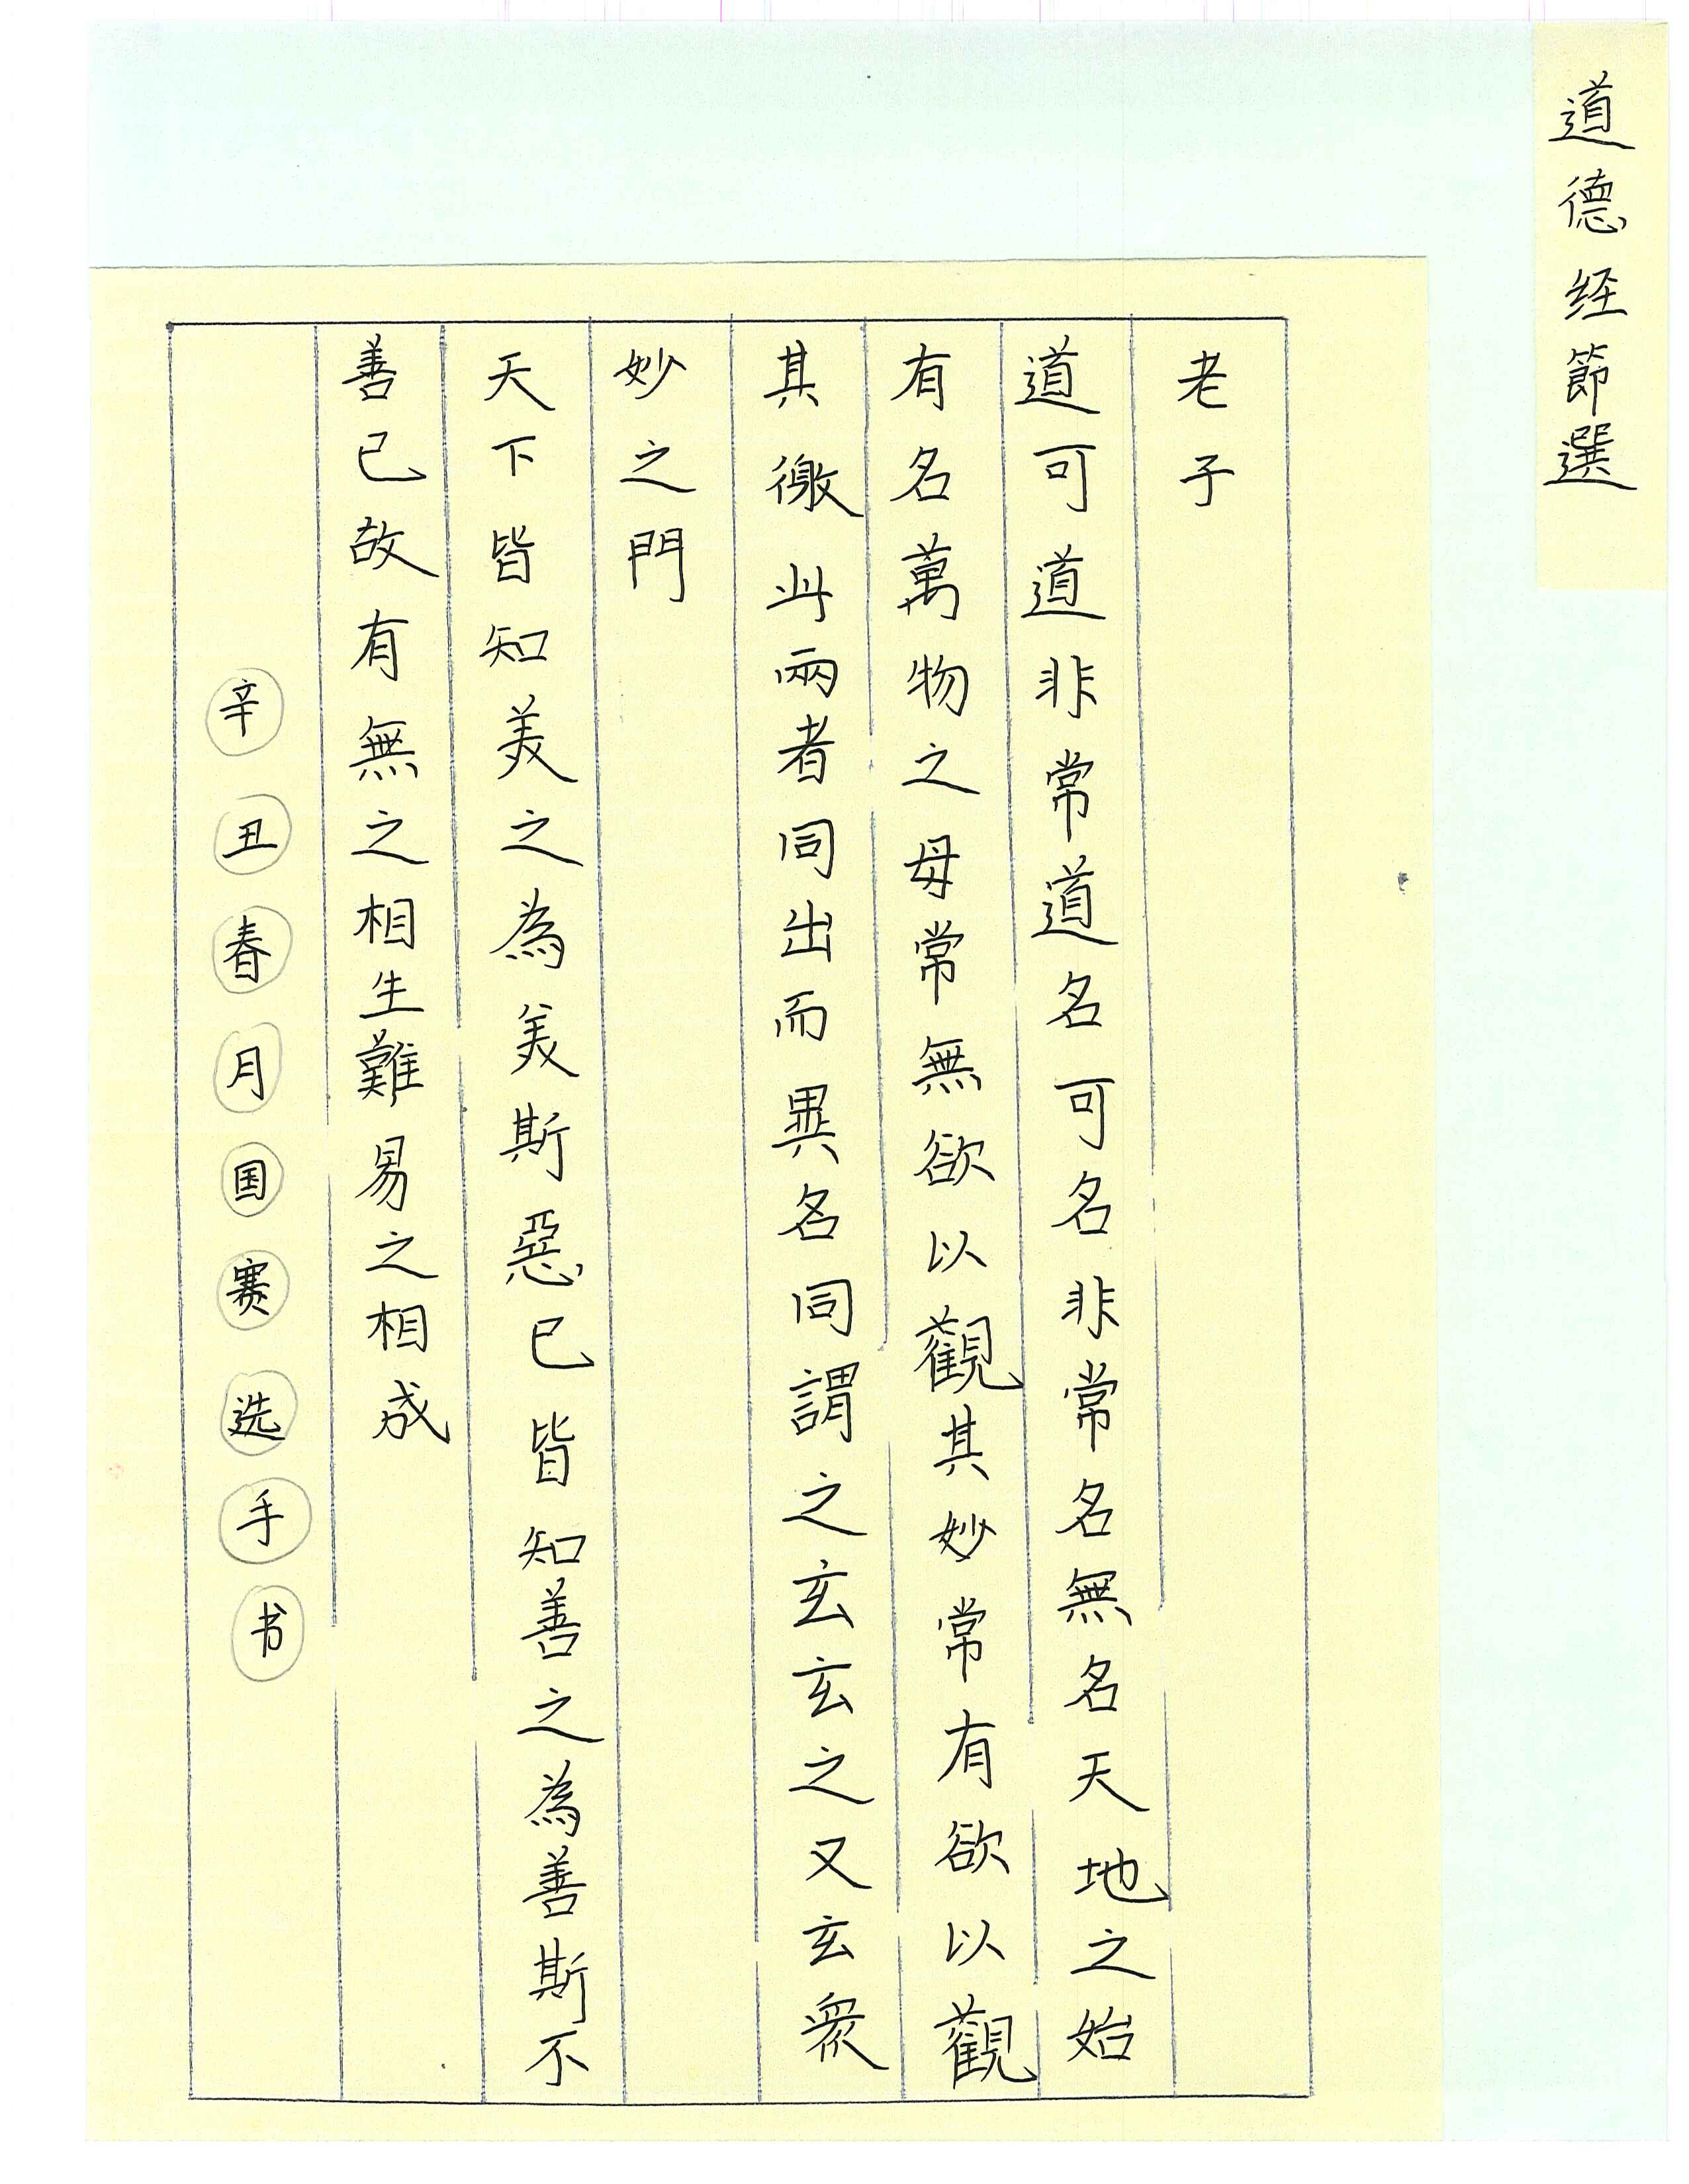 道德经節選
老子
道可道非常道名可名非常名無名天地之始
有名萬物之母常無欲以觀其妙常有欲以觀
其徼此兩者同出而異名同謂之玄玄之又玄衆
妙之門
天下皆知美之為美斯惡已皆知善之為善斯不
善已故有無之相生難易之相成
辛丑春月国赛选手书